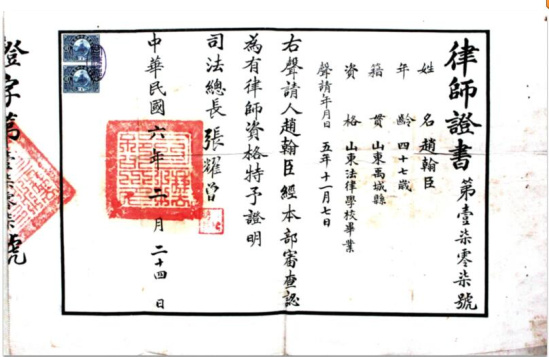 律師證書
第壹柒零柒號
姓名 趙翰臣
年齡 四十七歲
籍貫 山東禹城縣
資格 山東法律學校畢業
聲請年月日 五年十一月七日
右聲請人趙翰臣經本部審查認
為有律師資格特予證明
司法總長 張耀曾
中華民國六年二月二十四日
證字第壹柒零柒號